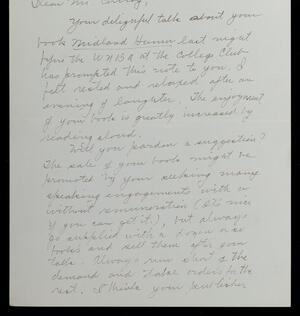 Dear Mr.
Your delightful talk about your
book Midland Humor last night
before the WNBA at the College Club
has prompted this note to you. I
felt rested and relaxed after an
evening of laughter. The enjoyment
of your books is greatly increased by
reading aloud.
Will you pardon a suggestion?
The sale of your books might be
promoted by your seeking many
speaking engagements with or
without remuneration (it's nice
if you can get it), but always
go supplied with a dozen or so
books and sell them after your
talk. Always run short of the
demand and take orders for the
rest. I think your publisher